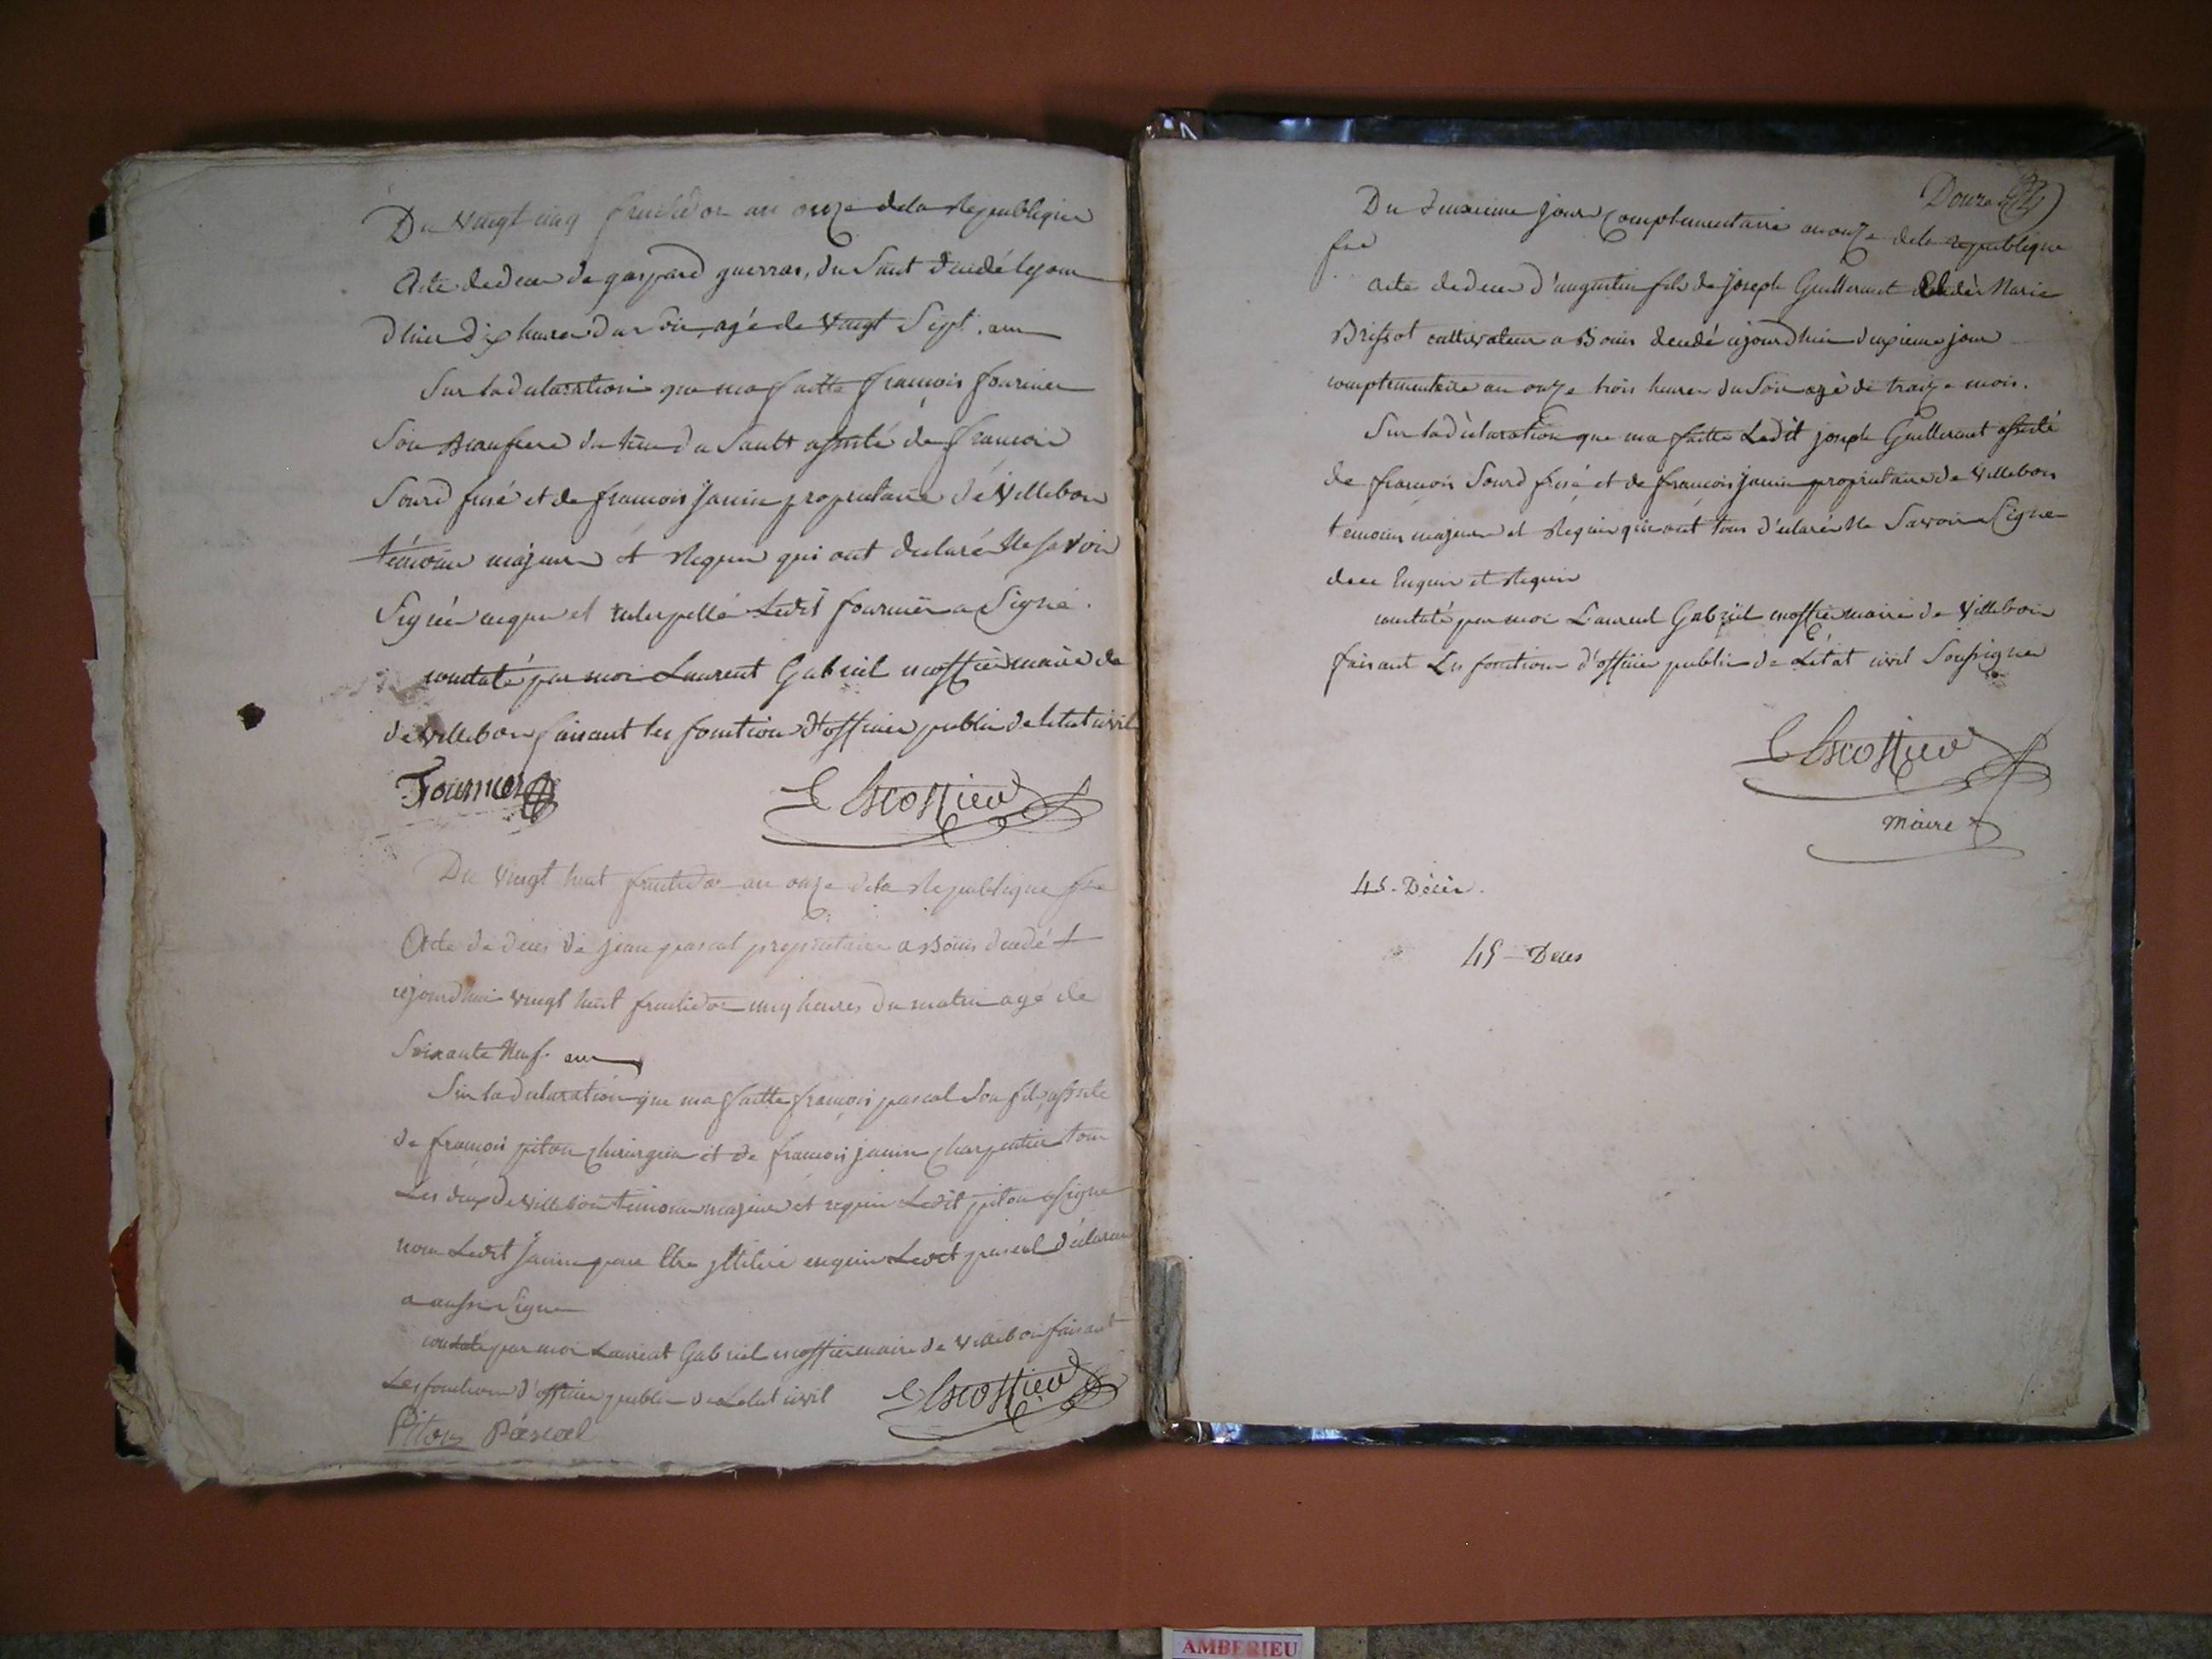 Du vingt cinq fructidor an onze dela Republique
Acte dedeces de gaspard guerras, du Sault decedé le jour
d'hier dix heures du soir, agé de vingt Sept. ans
Sur la declaration que ma faitte francois fournier
Son Beaufrere du lieu du Sault assisté de francois
Sourd frisé et de francois Janin proprietaire de Villebois
témoins majeurs et Requis qui ont declaré Ne savoir
Signér enquis et interpellé Ledit fournier a Signé.
constaté par moi Laurent Gabriel escoffier maire de
de villebois faisant les fonctions d'officier public de letat civil
Fournier L Escoffier
Du vingt huit fructidor an onze dela Republique fse
Acte de deces de jean pascal proprietaire a Bouis decedé
ajourdhui vingt huit fructidor cinq heures du matin agé de
Soixante Neuf. ans
Sur la declaration que ma faitte francois pascal son fils assisté
de francois piton chirurgien et de francois janin charpentier tous
Les deux de villebois témoins majeurs et requis Ledit piton a signe
non Ledit Janin pour Etre illitéré enquis Ledit pascal déclarant
a aussi Signe
constaté par moi Laurent Gabriel escoffier maire de villebois faisant
Les fonctions d'officier public de Letat civil L Escoffier
Piton Pascal
Douze
Du deuxieme jour complementaire an onze dela republique
fse
acte dedeces d'augustin fils de Joseph Guillermet et de Marie
Brissot cultivateur a Bouis decedé ajourdhui deuxieme jour
complementaire an onze trois heures du Soir agé de treize mois.
Sur la déclaration que ma faitte Ledit joseph Guillermet assisté
de francois Sourd frisé et de francois janin proprietaire de villebois
témoins majeurs et Requis qui ont tous déclaré Ne Savoir Signe
dece Enquis et Requis
constaté par moi Laurent Gabriel escoffier maire de Villebois
faisant Les fonctions d'officier public de Létat civil Soussigner
L Escoffier
maire
45. Décès.
45 - Deces
AMBERIEU